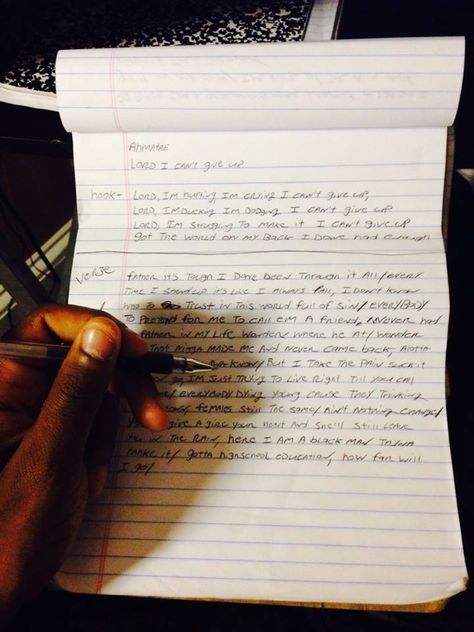 Ahmatae
LORD I CAN'T give up
hook- LORD, I'm hurting, I'm crying I can't give up,
LORD, I'm Ducking I'm Dodging I can't give up
LORD, I'm struggling To make it I can't give up
Got The World on my Back I Done had Enough
verse
Father it's Tough I Done Been Through it All/ every
Time I stand up it's Like I Always Fall, I Don't know
who To Trust in This world full of Sin/ everybody
To Pretend for me To call em A friend, Never had
father in my Life Wonder/ where he At/ Wonder
That Nigga made me And Never came back, Alotta
know/ But I Take The Pain suck it
go, I'm Just Trying To Live Right Till you call
me/ everybody Dying young cause They Thinking
females still The same/ Ain't Nothing change/
give A girl your heart And she'll still Leave
you in The Rain, here I am A black man Tryna
make it/ gotta highschool education, how far will
I go/